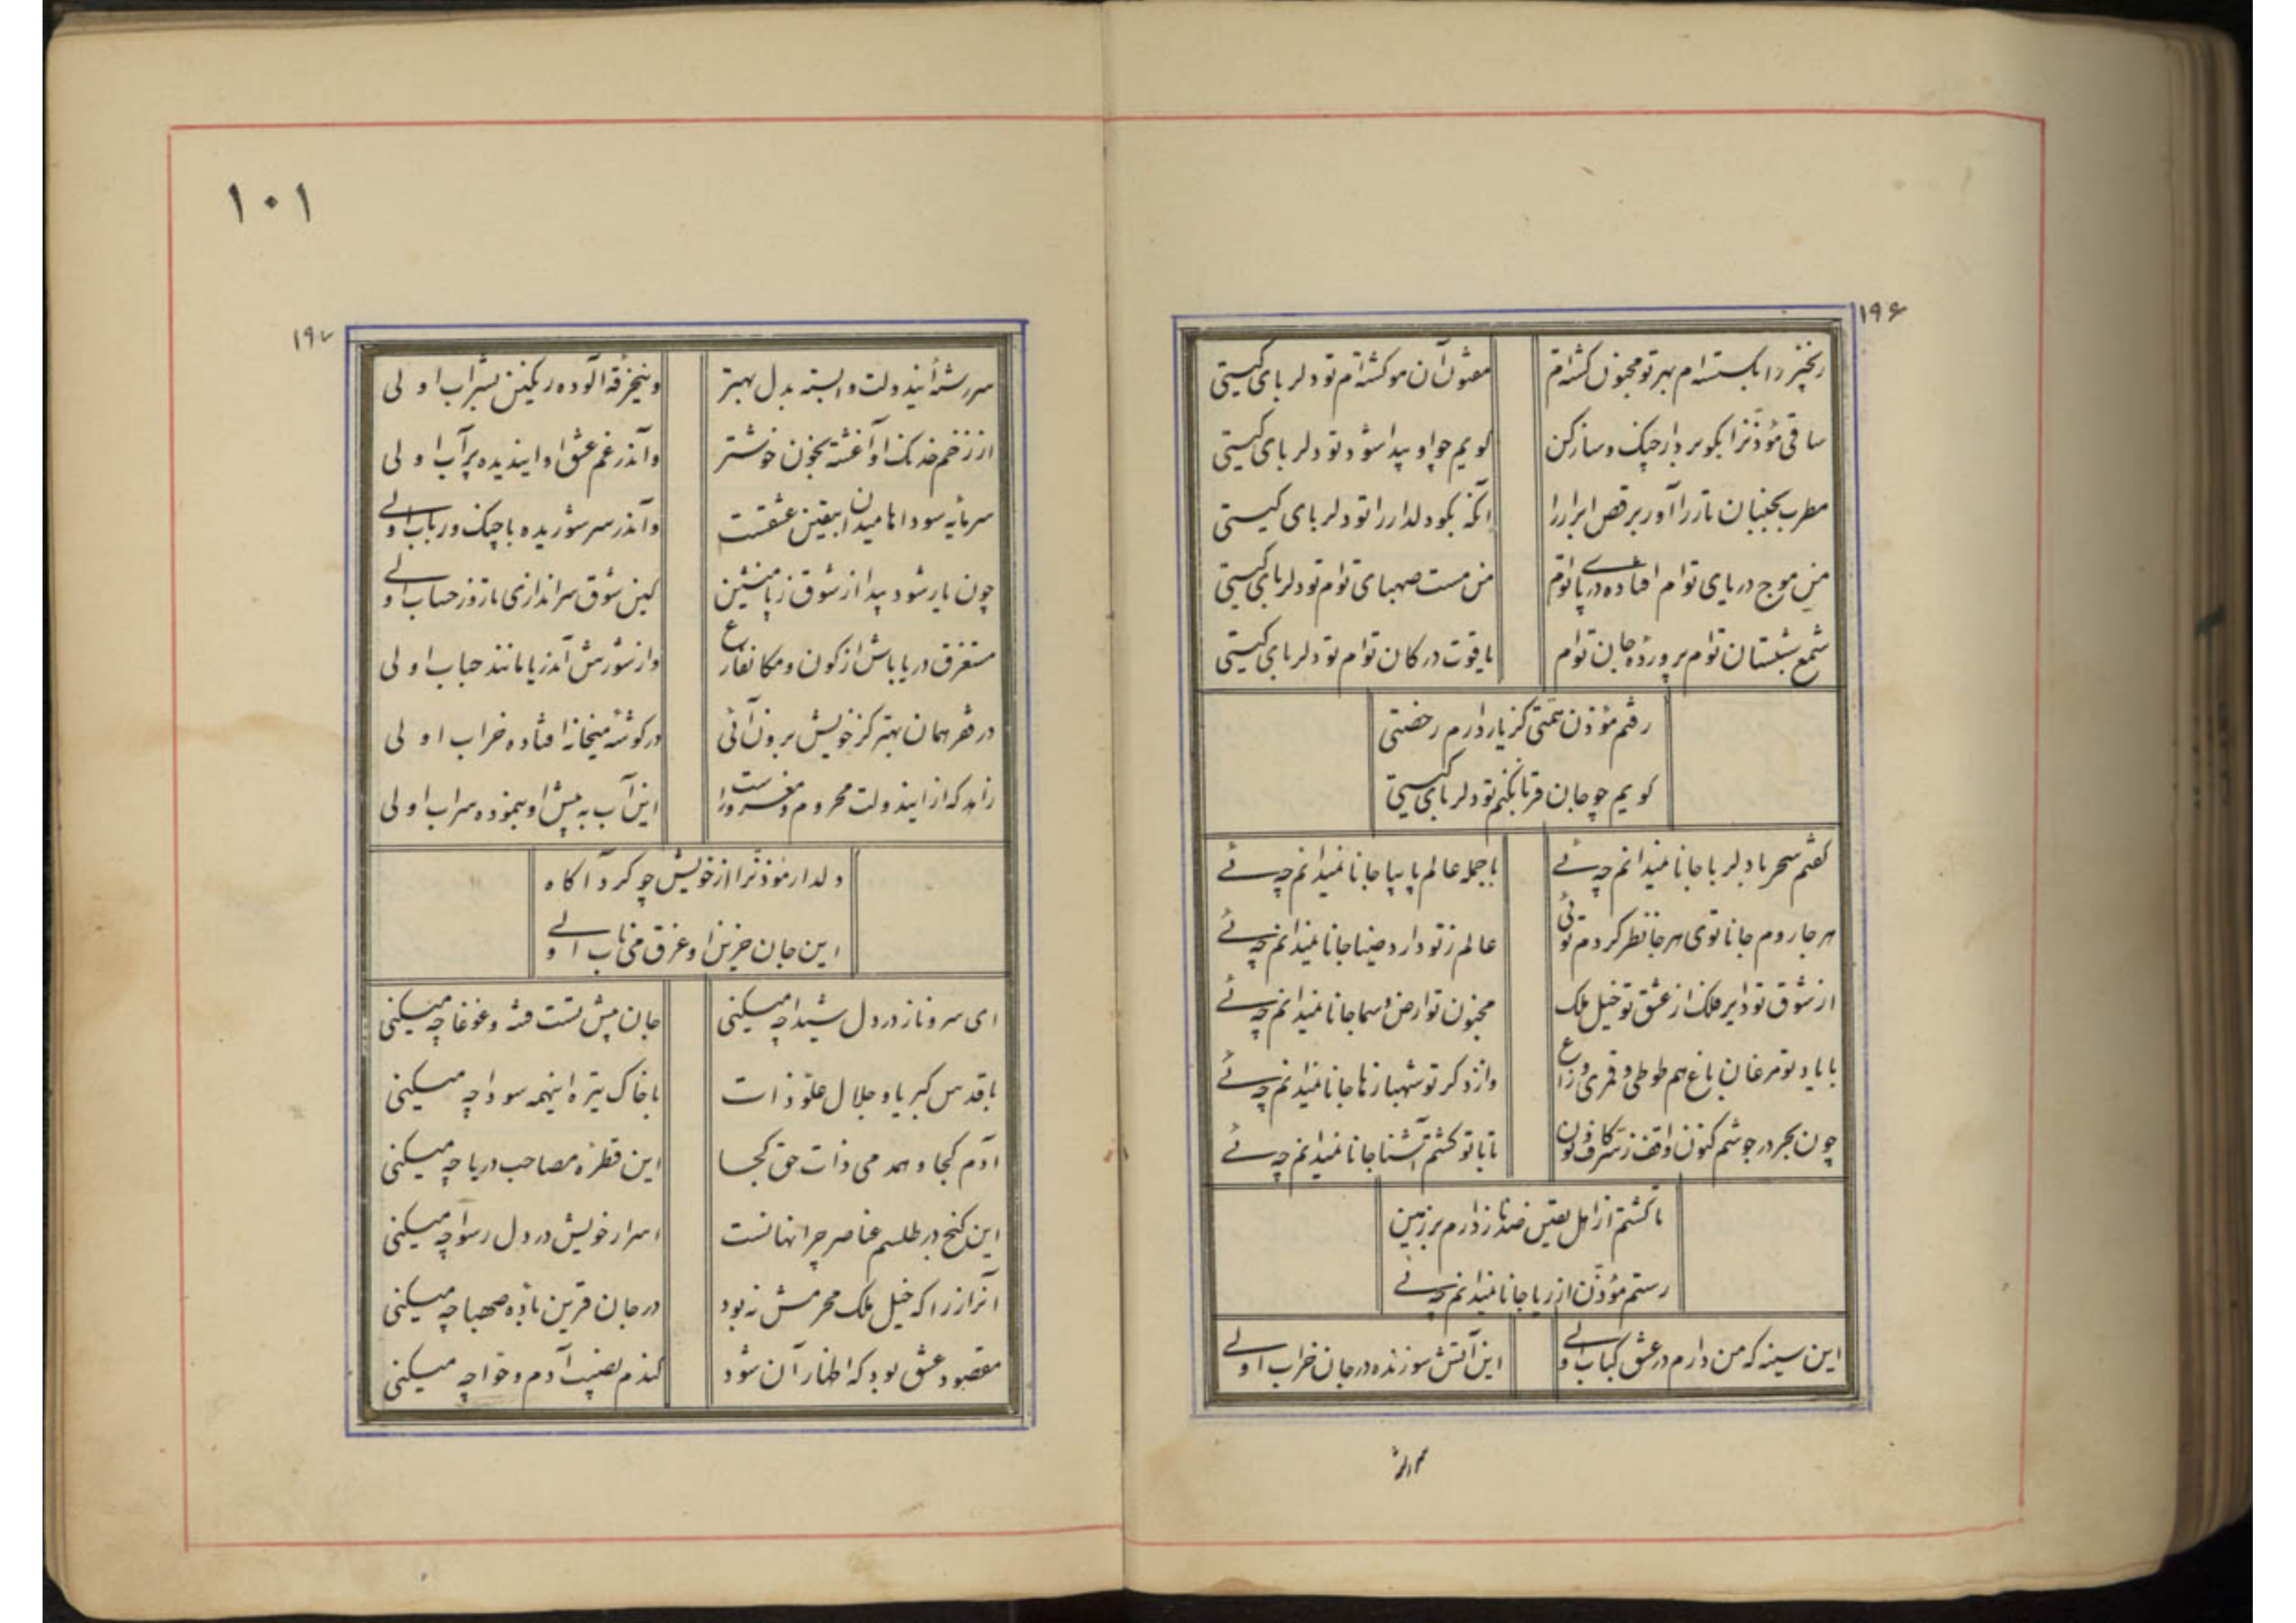 ۱۹۶
زنجیر را بگسسته‌ام بهر تو مجنون گشته‌ام
مفتون آن مو گشته‌ام تو دلربای کیستی
ساقی مؤذنرا بگو بردار چنگ و ساز کن
گویم چو او پیدا شود تو دلربای کیستی
مطرب بجنبان تار را آور برقص ابرار را
آنگه بگو دلدار را تو دلربای کیستی
من موج دریای توام افتاده در پای توام
من مست صهبای توام تو دلربای کیستی
شمع شبستان توام پرورده جان توام
یاقوت در کان توام تو دلربای کیستی
رفتم مؤذن همتی کز یار دارم رخصتی
گویم چو جان قربان کنم تو دلربای کیستی
گفتم سحر با دلربا جانا نمیدانم چه ئے
با جمله عالم پا بپا جانا نمیدانم چه ئے
هر جا روم جانا توی هر جا نظر کردم توئی
عالم ز تو دارد ضیا جانا نمیدانم چه ئے
از شوق تو دایر فلک از عشق تو خیل ملک
مجنون تو ارض و سما جانا نمیدانم چه ئے
با یاد تو مرغان باغ هم طوطی و قمری و زاغ
وز ذکر تو شهبازها جانا نمیدانم چه ئے
چون بحر در جوشم کنون واقف ز سر کاف و نون
تا با تو گشتم آشنا جانا نمیدانم چه ئے
تا گشتم از اهل یقین صد ناز دارم بر زمین
رستم مؤذن از ریا جانا نمیدانم چه ئے
این سینه که من دارم در عشق کباب اولے
این آتش سوزنده در جان خراب اولے
سررشته
۱۰۱
۱۹۷
سررشته ایندولت وابسته بدل بهتر
وینخرقه آلوده رنگین بشراب اولی
از زخم خدنک او آغشته بخون خوشتر
واندر غم عشق او ایندیده پر آب اولی
سرمایه سوداها میدان بیقین عشقست
واندر سر شوریده با چنک و رباب اولے
چون یار شود پیدا از شوق ز پا منشین
کین شوق سراندازی تا روز حساب اولے
مستغرق دریا باش از کون و مکان فارغ
وز شورش آندریا مانند حباب اولی
در فقر همان بهتر کز خویش برون آئی
در گوشه میخانه افتاده خراب اولی
زاهد که از ایندولت محروم و مغرورست
این آب به پیش او بنموده سراب اولی
دلدار مؤذنرا از خویش چو کرد آگاه
این جان حزین او غرق می ناب اولے
ای سرو ناز در دل شیدا چه میکنی
جان پیش تست فتنه و غوغا چه میکنی
با قدس کبریا و جلال علو ذات
با خاک تیره اینهمه سودا چه میکنی
آدم کجا و همدمی ذات حق کجا
این قطره مصاحب دریا چه میکنی
این گنج در طلسم عناصر چرا نهانست
اسرار خویش در دل رسوا چه میکنی
آنراز را که خیل ملک محرمش نه بود
در جان قرین باده صهبا چه میکنی
مقصود عشق بود که اظهار آن شود
گندم نصیب آدم و حوا چه میکنی